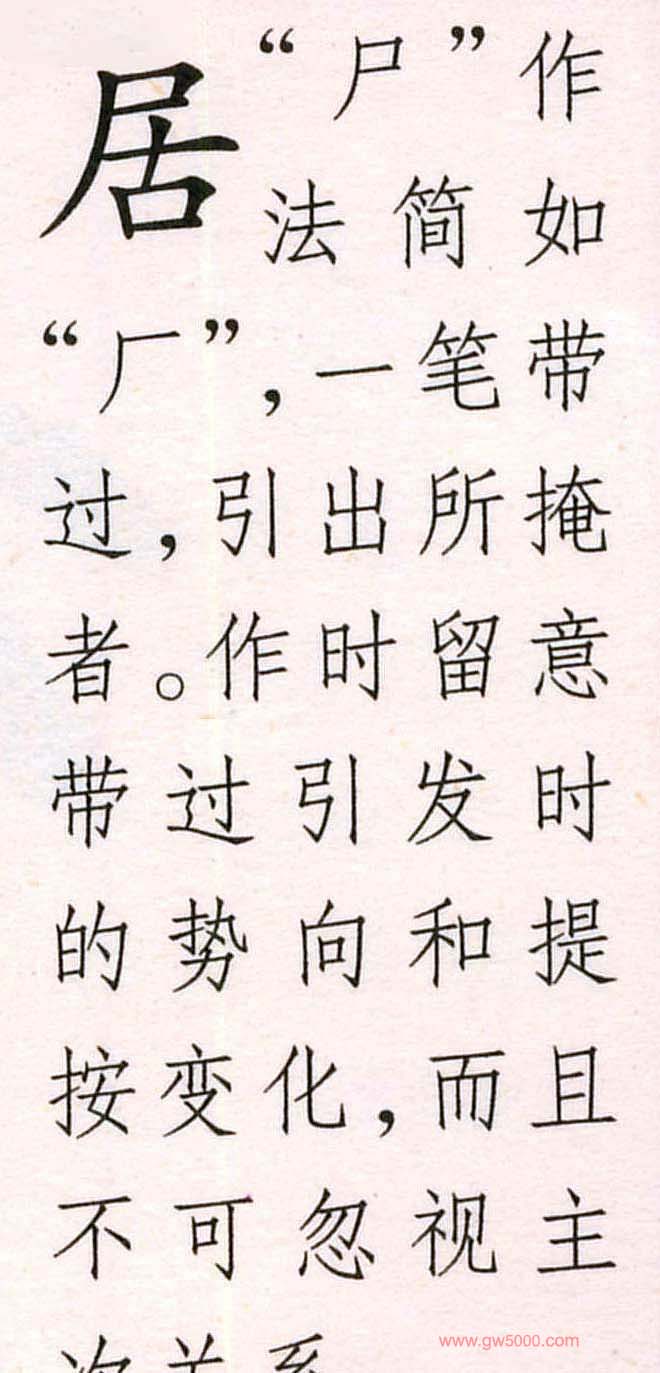 居
“尸”作
法简如
“厂”，一笔带
过，引出所掩
者。作时留意
带过引发时
的势向和提
按变化，而且
不可忽视主
次关系
www.gw5000.com